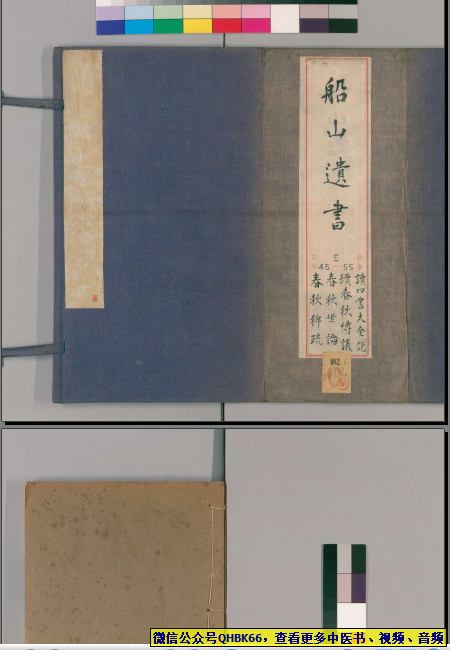 船山遺書
5
45—55
讀四書大全說
續春秋博議
春秋世論
春秋稗疏
062.
微信公众号QHBK66，查看更多中医书、视频、音频